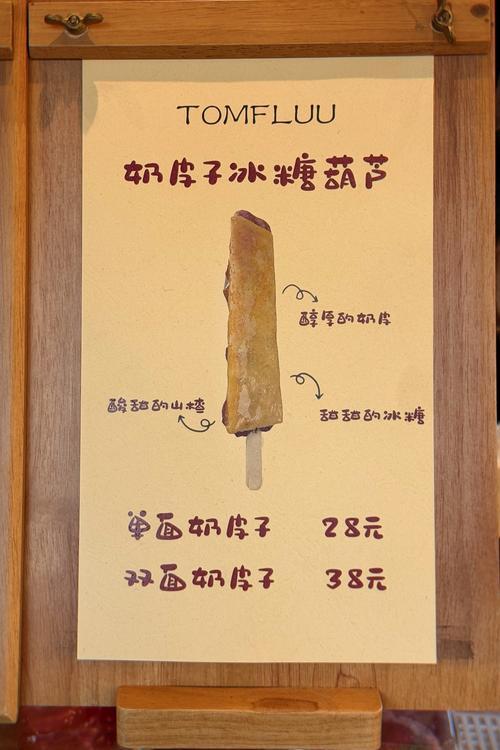 TOMFLUU
奶皮子冰糖葫芦
醇厚的奶皮
酸甜的山楂
甜甜的冰糖
单面奶皮子 28元
双面奶皮子 38元